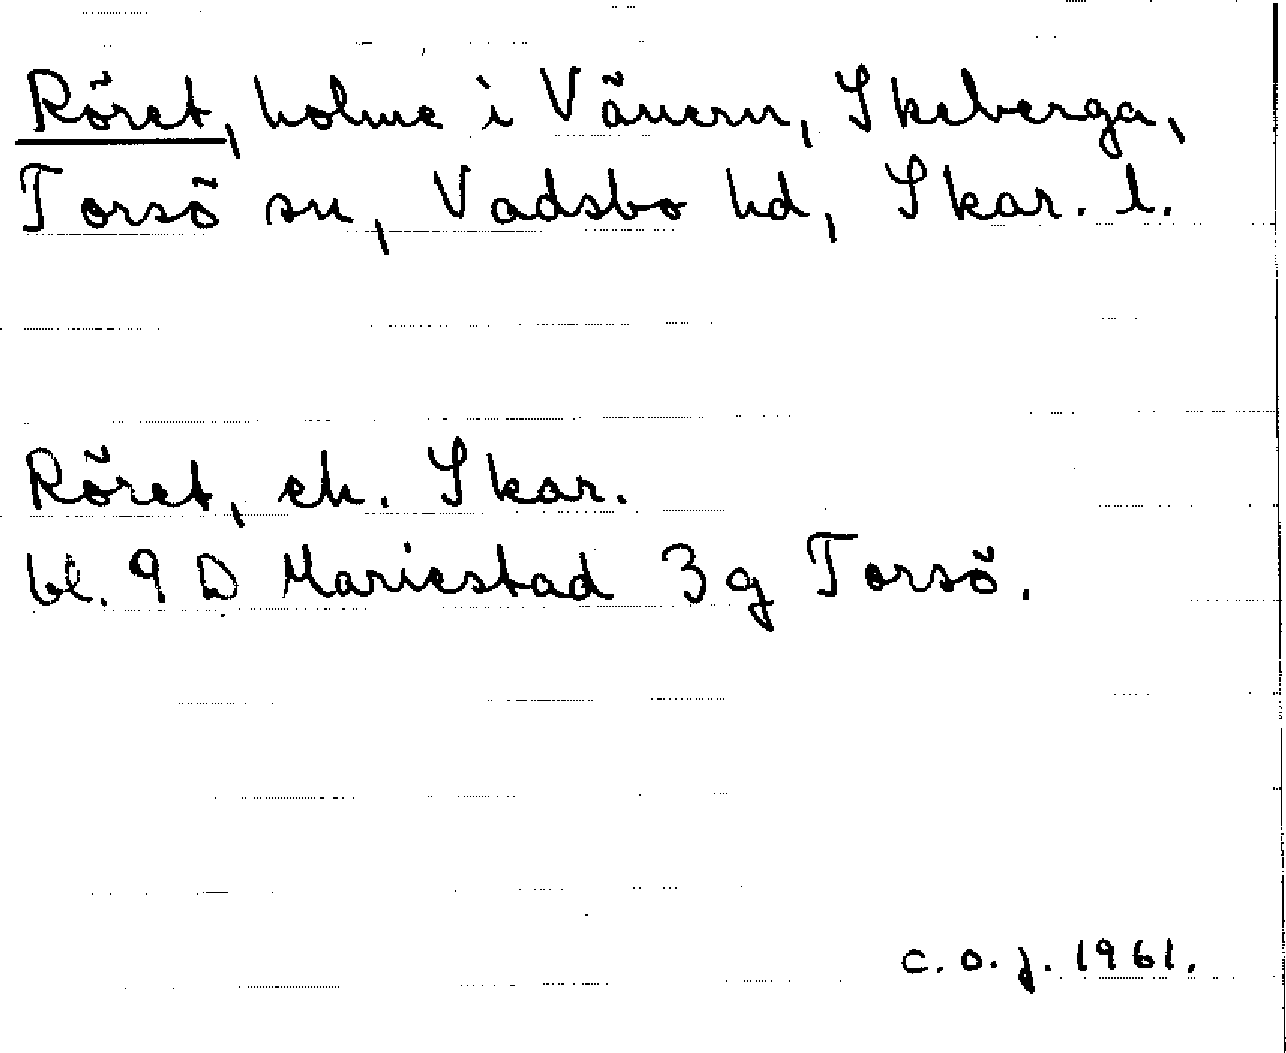 Röret, holme i Vänern, Skeberga,
Torsö sn, Vadsbo hd, Skar. l.
Röret, ek. Skar.
bl. 9 D Mariestad 3 g Torsö.
c. o. j. 1961.